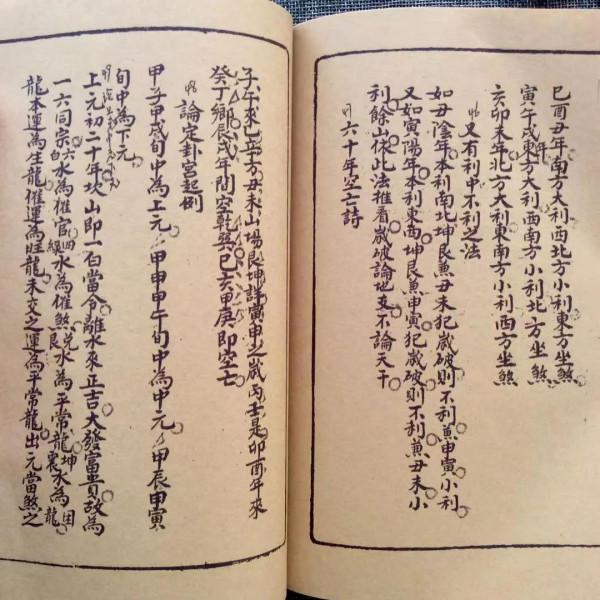 巳酉丑年南方大利西北方小利東方坐煞
寅午戌年東方大利西南方小利北方坐煞
亥卯未年北方大利東南方小利西方坐煞
又有利中不利之法
如丑陰年本利南北坤艮兼丑未犯歲破則不利兼申寅小利
又如寅陽年本利東西坤艮兼申寅犯歲破則不利兼丑未小
利餘山依此法推看歲破論地支不論天干
六十年空亡詩
子午來巳辛方丑未山場艮坤詳寅申之歲丙壬是卯酉年來
癸丁鄉辰戌年間空乾巽巳亥甲庚即空亡
論定卦宮起例
甲子甲戌旬中為上元甲申甲午旬中為中元甲辰甲寅
旬中為下元
上元初二十年坎山即一白當令離水來正吉大發富貴故為
一六同宗六白水為催官四綠水為催煞兌艮水為平常龍坤震水為困龍
龍本運為生龍催運為旺龍未交之運為平常龍出元當煞之